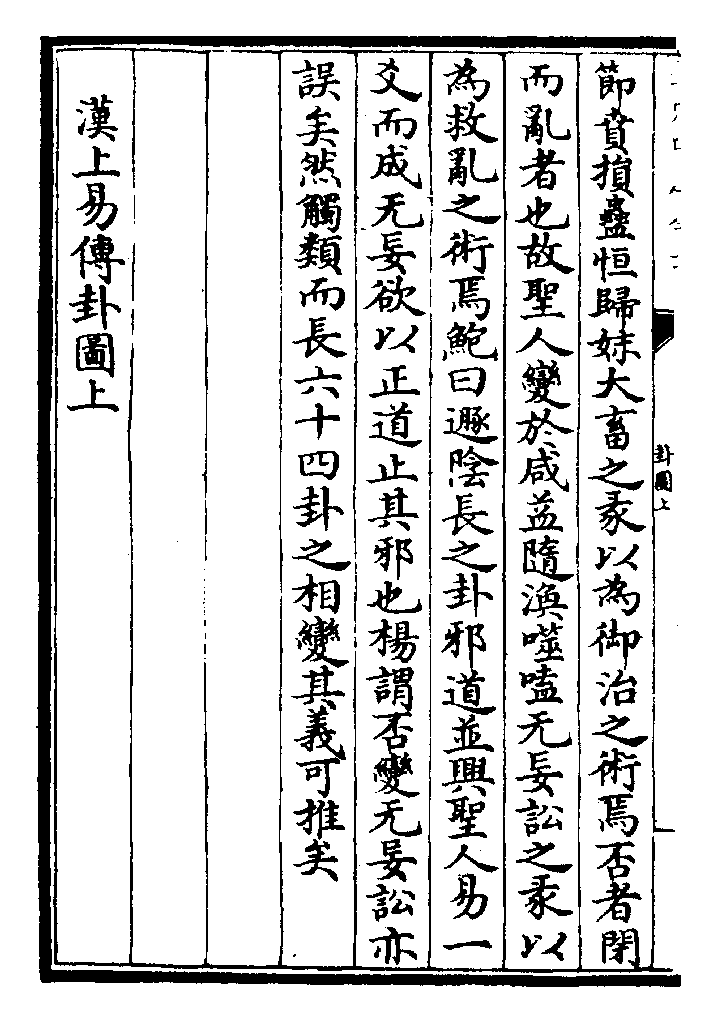 節賁損蠱恒歸妹大畜之彖以為御治之術焉否者閉
而亂者也故聖人變於咸益隨渙噬嗑无妄訟之彖以
為救亂之術焉鮑曰遯陰長之卦邪道並興聖人易一
爻而成无妄欲以正道止其邪也楊謂否變无妄訟亦
誤矣然觸類而長六十四卦之相變其義可推矣
漢上易傳卦圖上
卦圖上